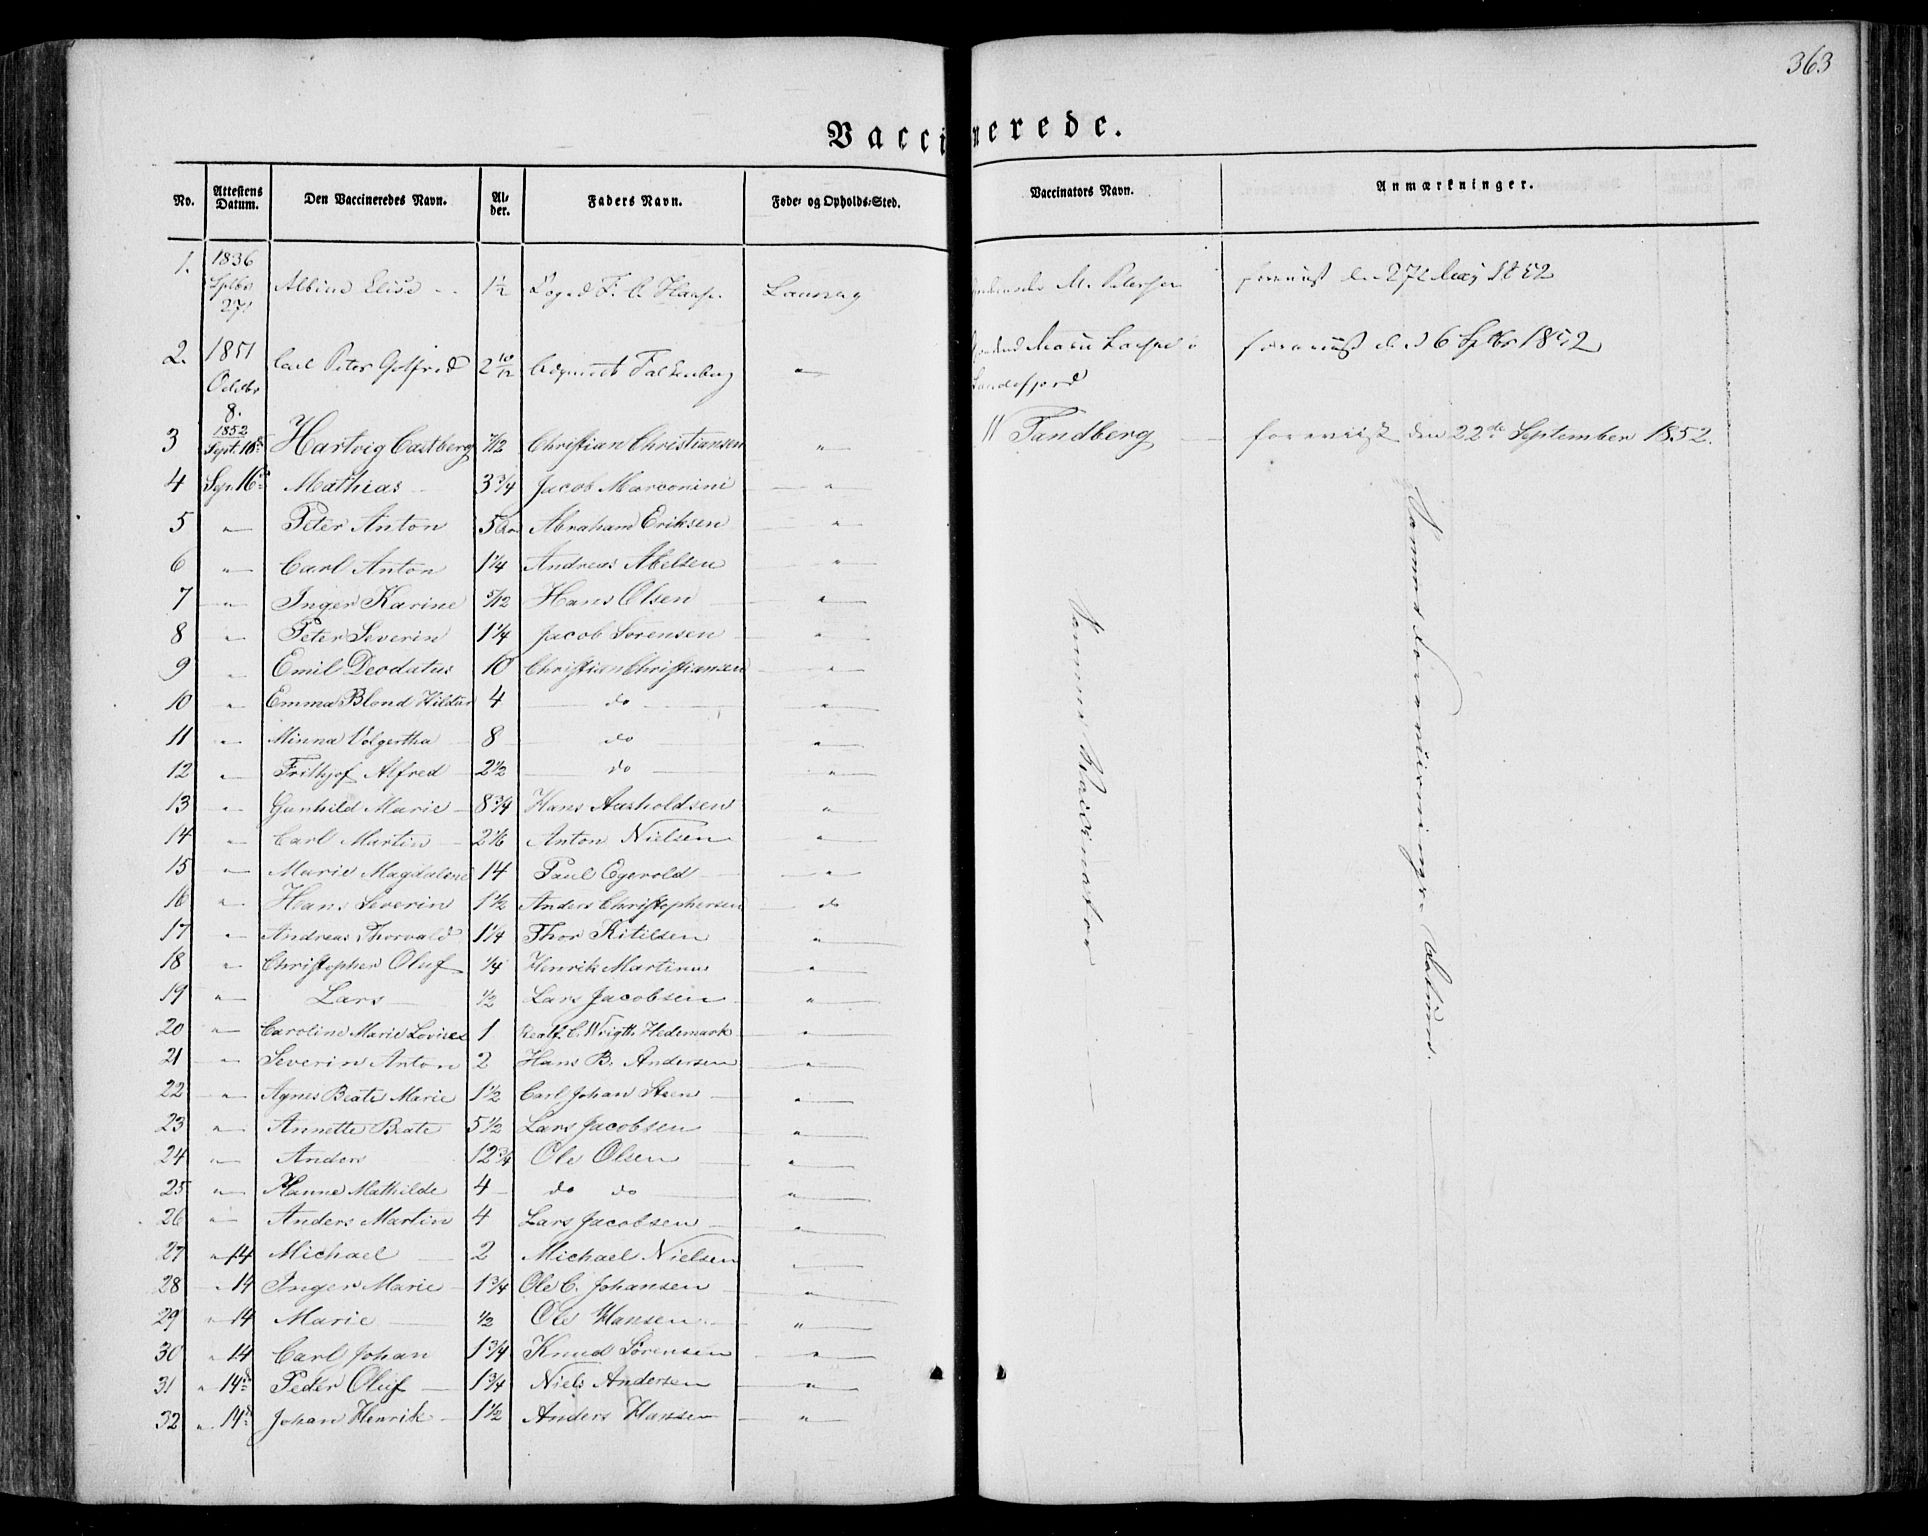 363
Vaccinerede.
No. Attestens Datum. Den Vaccineredes Navn. Alder. Faders Navn. Føde- og Opholds-Sted. Vaccinators Navn. Anmærkninger.
1. 1836 Sptbr 27 Albine Elise 1½ F. C. Laurvig M. Petersen foreviist 27 May 1852
2. 1851 Octbr 8. Carl Peter Gotfred 2 10/12 Adjunct Falkenberg " Sandefjord foreviist d. 6 Sptbr 1852
3 1852 Sept. 16d Hartvig Castberg 7/12 Christian Christiansen " Tandberg foreviist den 22de September 1852.
4 Sep. 16d Mathias 3¾ Jacob Marconini "
5 " Peter Anton 5 Abraham Eriksen "
6 " Carl Anton 1¼ Andreas Abelsen "
7 " Inger Karine 5/12 Hans Olsen "
8 " Peter Severin 1¼ Jacob Sørensen "
9 " Emil Deodatus 10 Christian Christiansen "
10 " Emma Blond Hildur 4 do "
11 " Minna Volgertha 8 do "
12 " Frithjof Alfred 2½ do "
13 " Gunhild Marie 8¾ Hans Aasholdsen "
14 " Carl Martin 2⅙ Anton Nielsen "
15 " Marie Magdalene 14 Paul Egevold "
16 " Hans Severin 1½ Anders Christophersen do
17 " Andreas Thorvald 1¼ Thor Kitilsen "
18 " Christopher Oluf ¼ Henrik Martinus "
19 " Lars ½ Lars Jacobsen "
20 " Caroline Marie Lovise 1 C. Wrigth. Hedemark "
21 " Severin Anton 2 Hans B. Andersen "
22 " Agnes Beate Marie 1½ Carl Johan Steen "
23 " Annette Beate 5½ Lars Jacobsen "
24 " Anders 12¾ Ole Olsen "
25 " Hanne Mathilde 4 do do "
26 " Anders Martin 4 Lars Jacobsen "
27 " 14 Michael 2 Michael Nielsen "
28 " 14 Inger Marie 1¾ Ole C. Johansen "
29 " 14 Marie ½ Ole Hansen "
30 " 14 Carl Johan 1¾ Knud Sørensen "
31 " 14d Peder Oluf 1¾ Niels Andersen "
32 " 14d Johan Henrik 1½ Anders Hansen "
Samme Vaccinator
Samme Foreviisnings Datum.